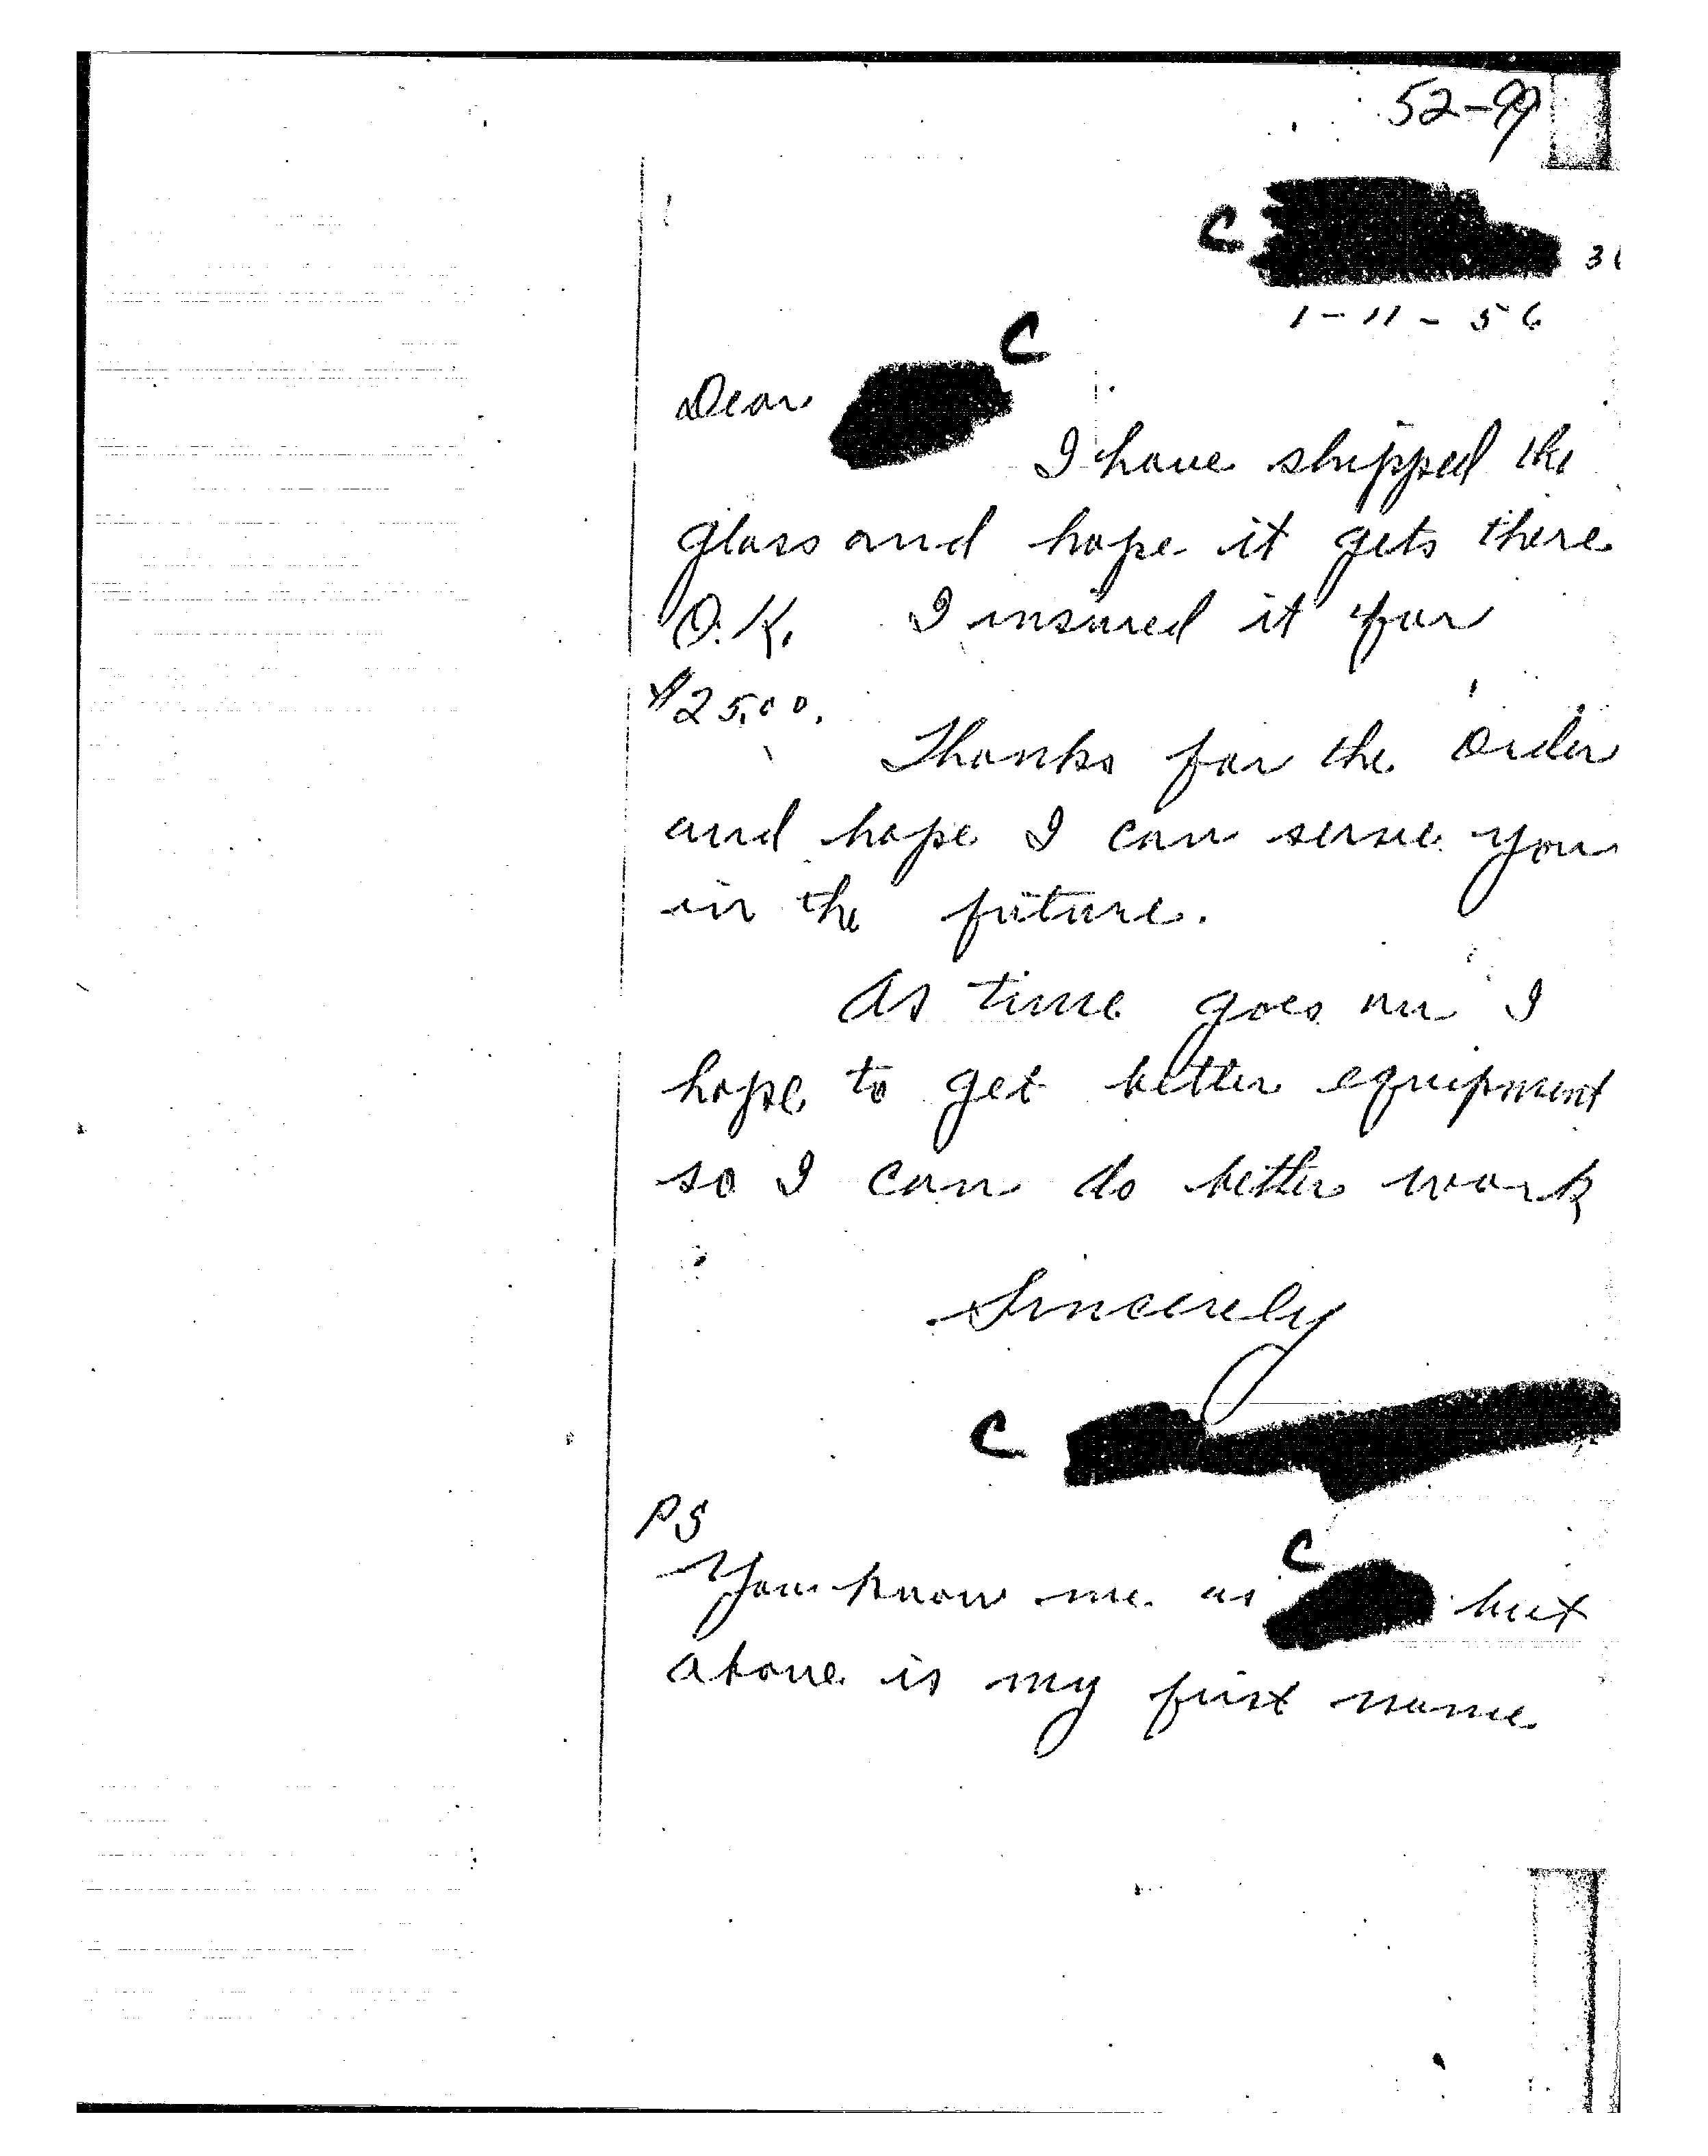 52-99
C
31
1-11-56
C
Dear
I have shipped the
glass and hope it gets there
O.K. I insured it for
$25.00.
Thanks for the order
and hope I can serve you
in the future.
As time goes on I
hope to get better equipment
so I can do better work
Sincerely
C
PS
C
You know me as but
above is my first name.